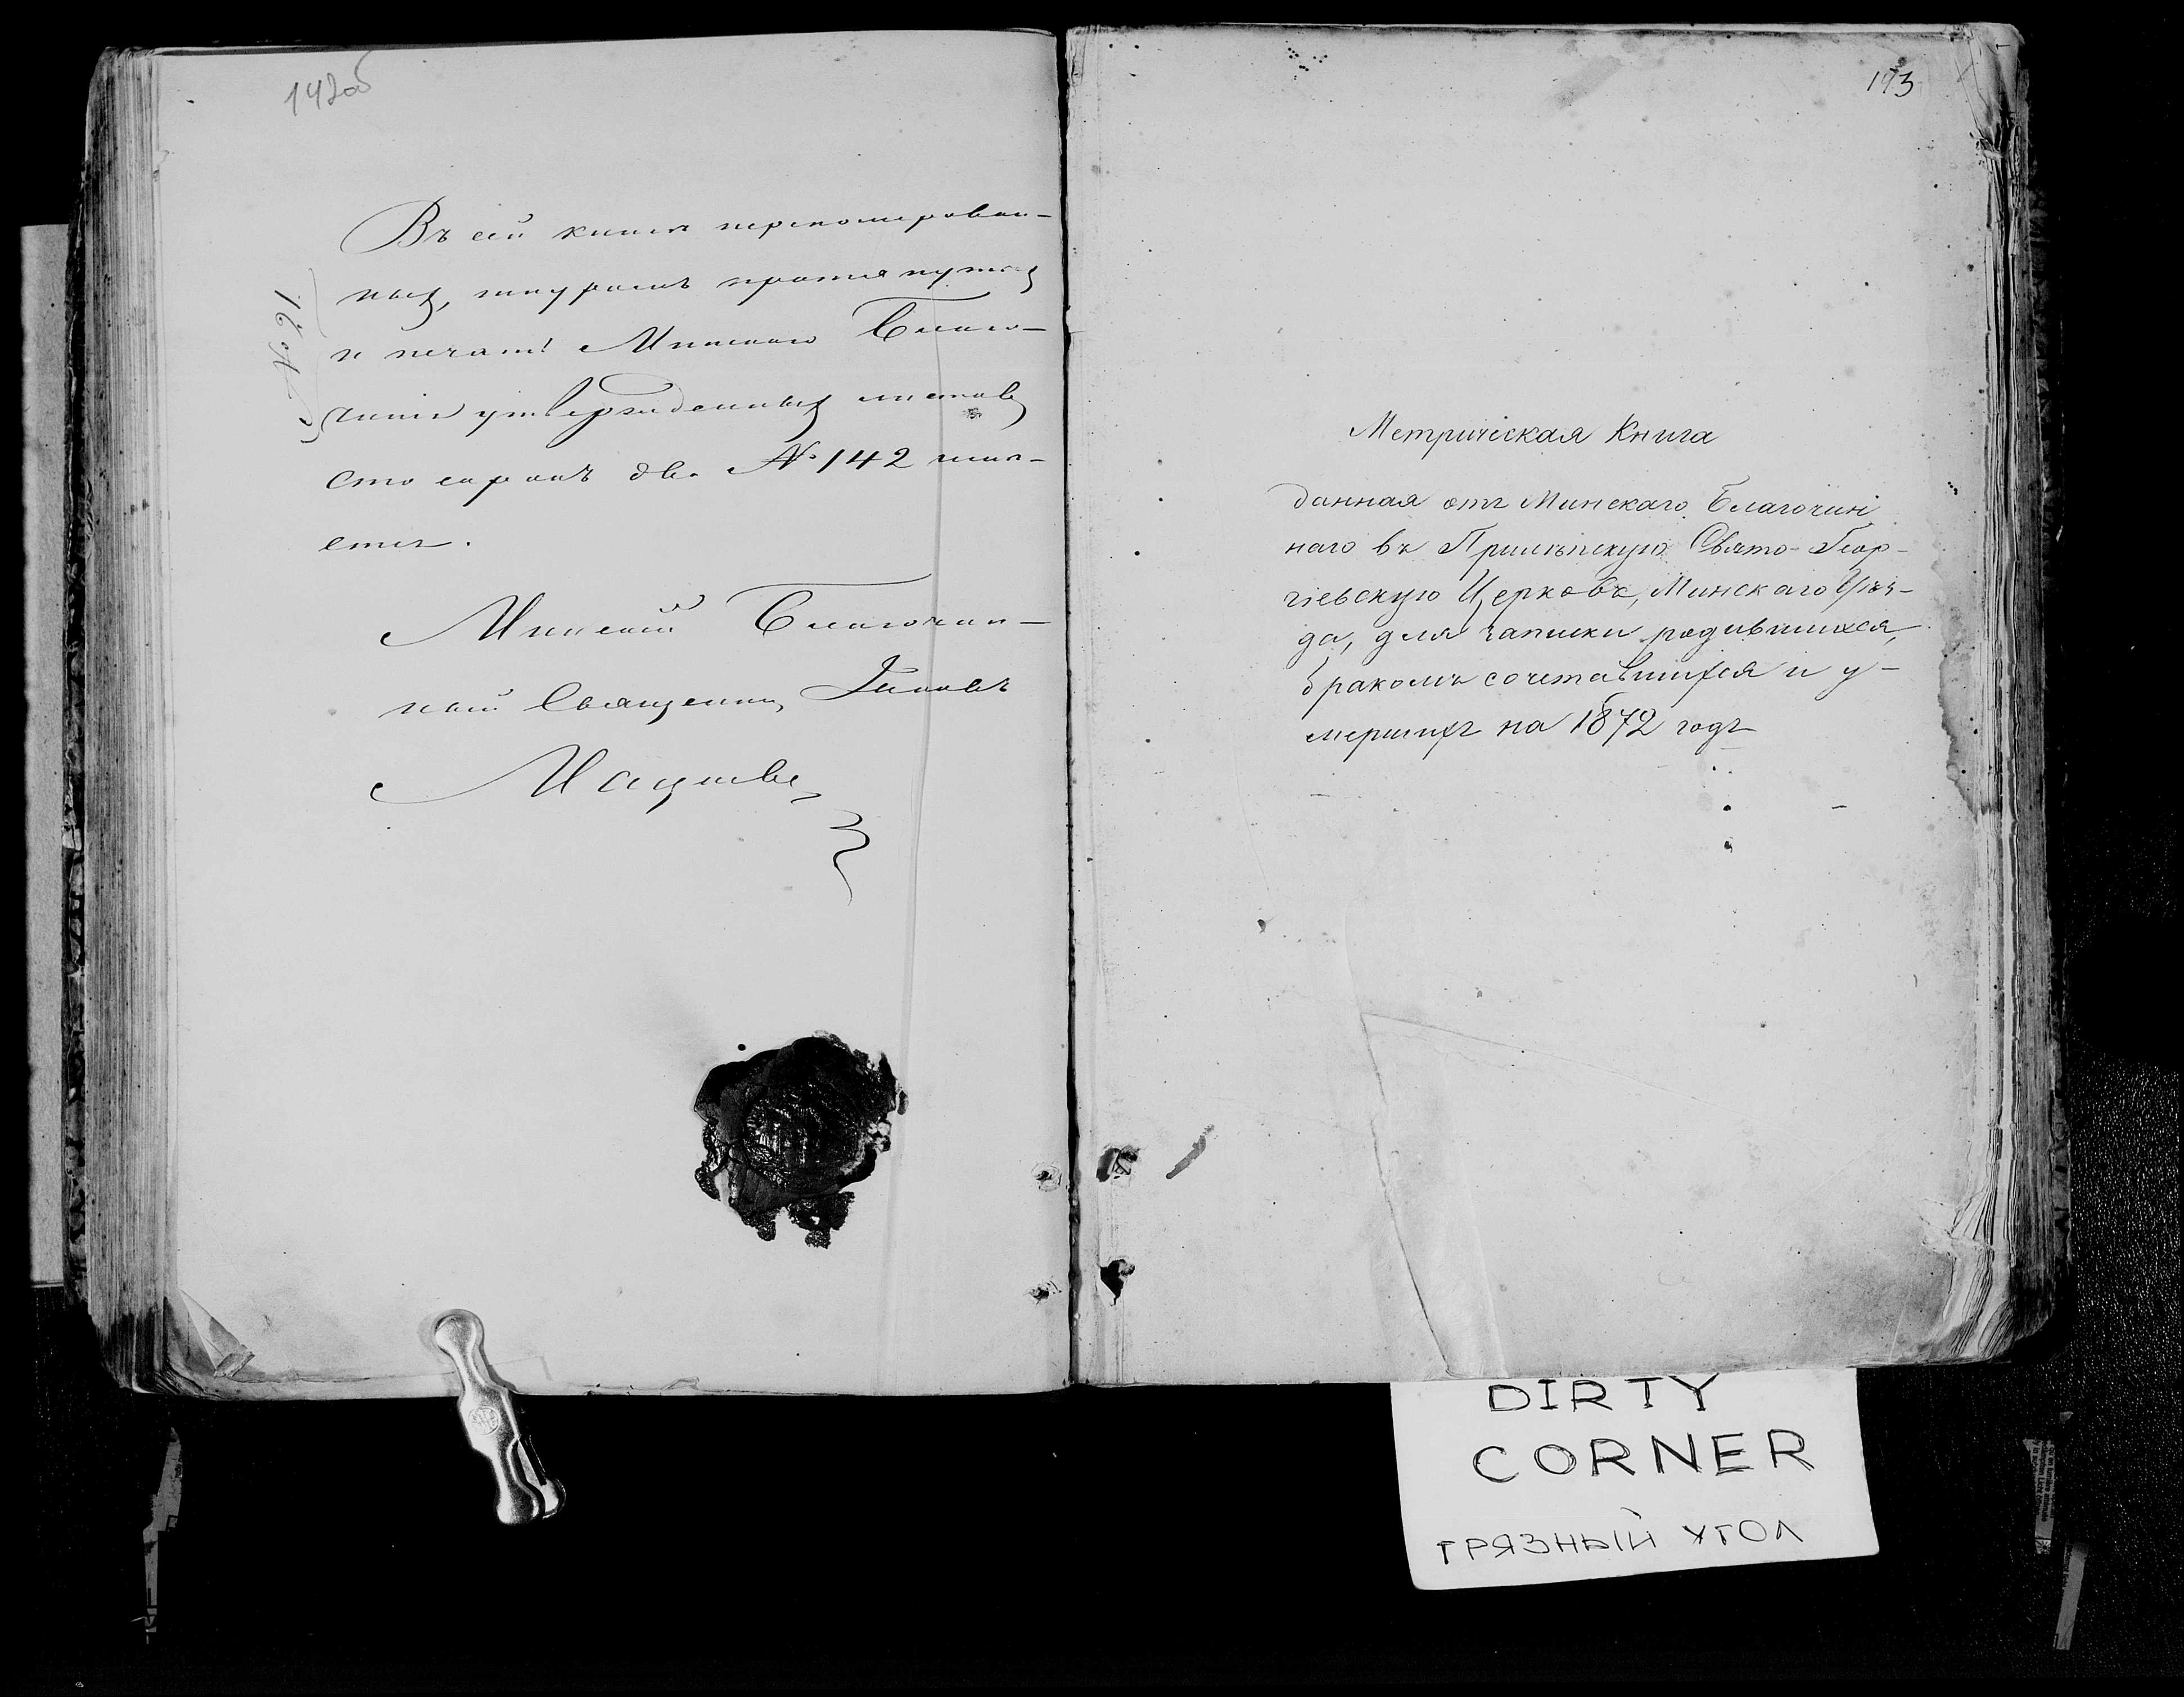 142об
Въ сей книгѣ перномерован-
ныхъ, шнуромъ протянутыхъ
и печатью Минскаго Благо-
чинія утвержденныхъ листовъ
сто сорокъ два № 142 имѣ-
ется.
Минскій Благочин-
ный Священникъ Іаковъ
№ 21
143
Метрическая Книга
данная отъ Минскаго Благочин
наго въ Прилѣпскую Свято-Геор-
гіевскую Церковь, Минскаго Уѣз-
да, для записки родившихся,
бракомъ сочетавшихся и у-
мершихъ на 1872 годъ
DIRTY
CORNER
ГРЯЗНЫЙ УГОЛ